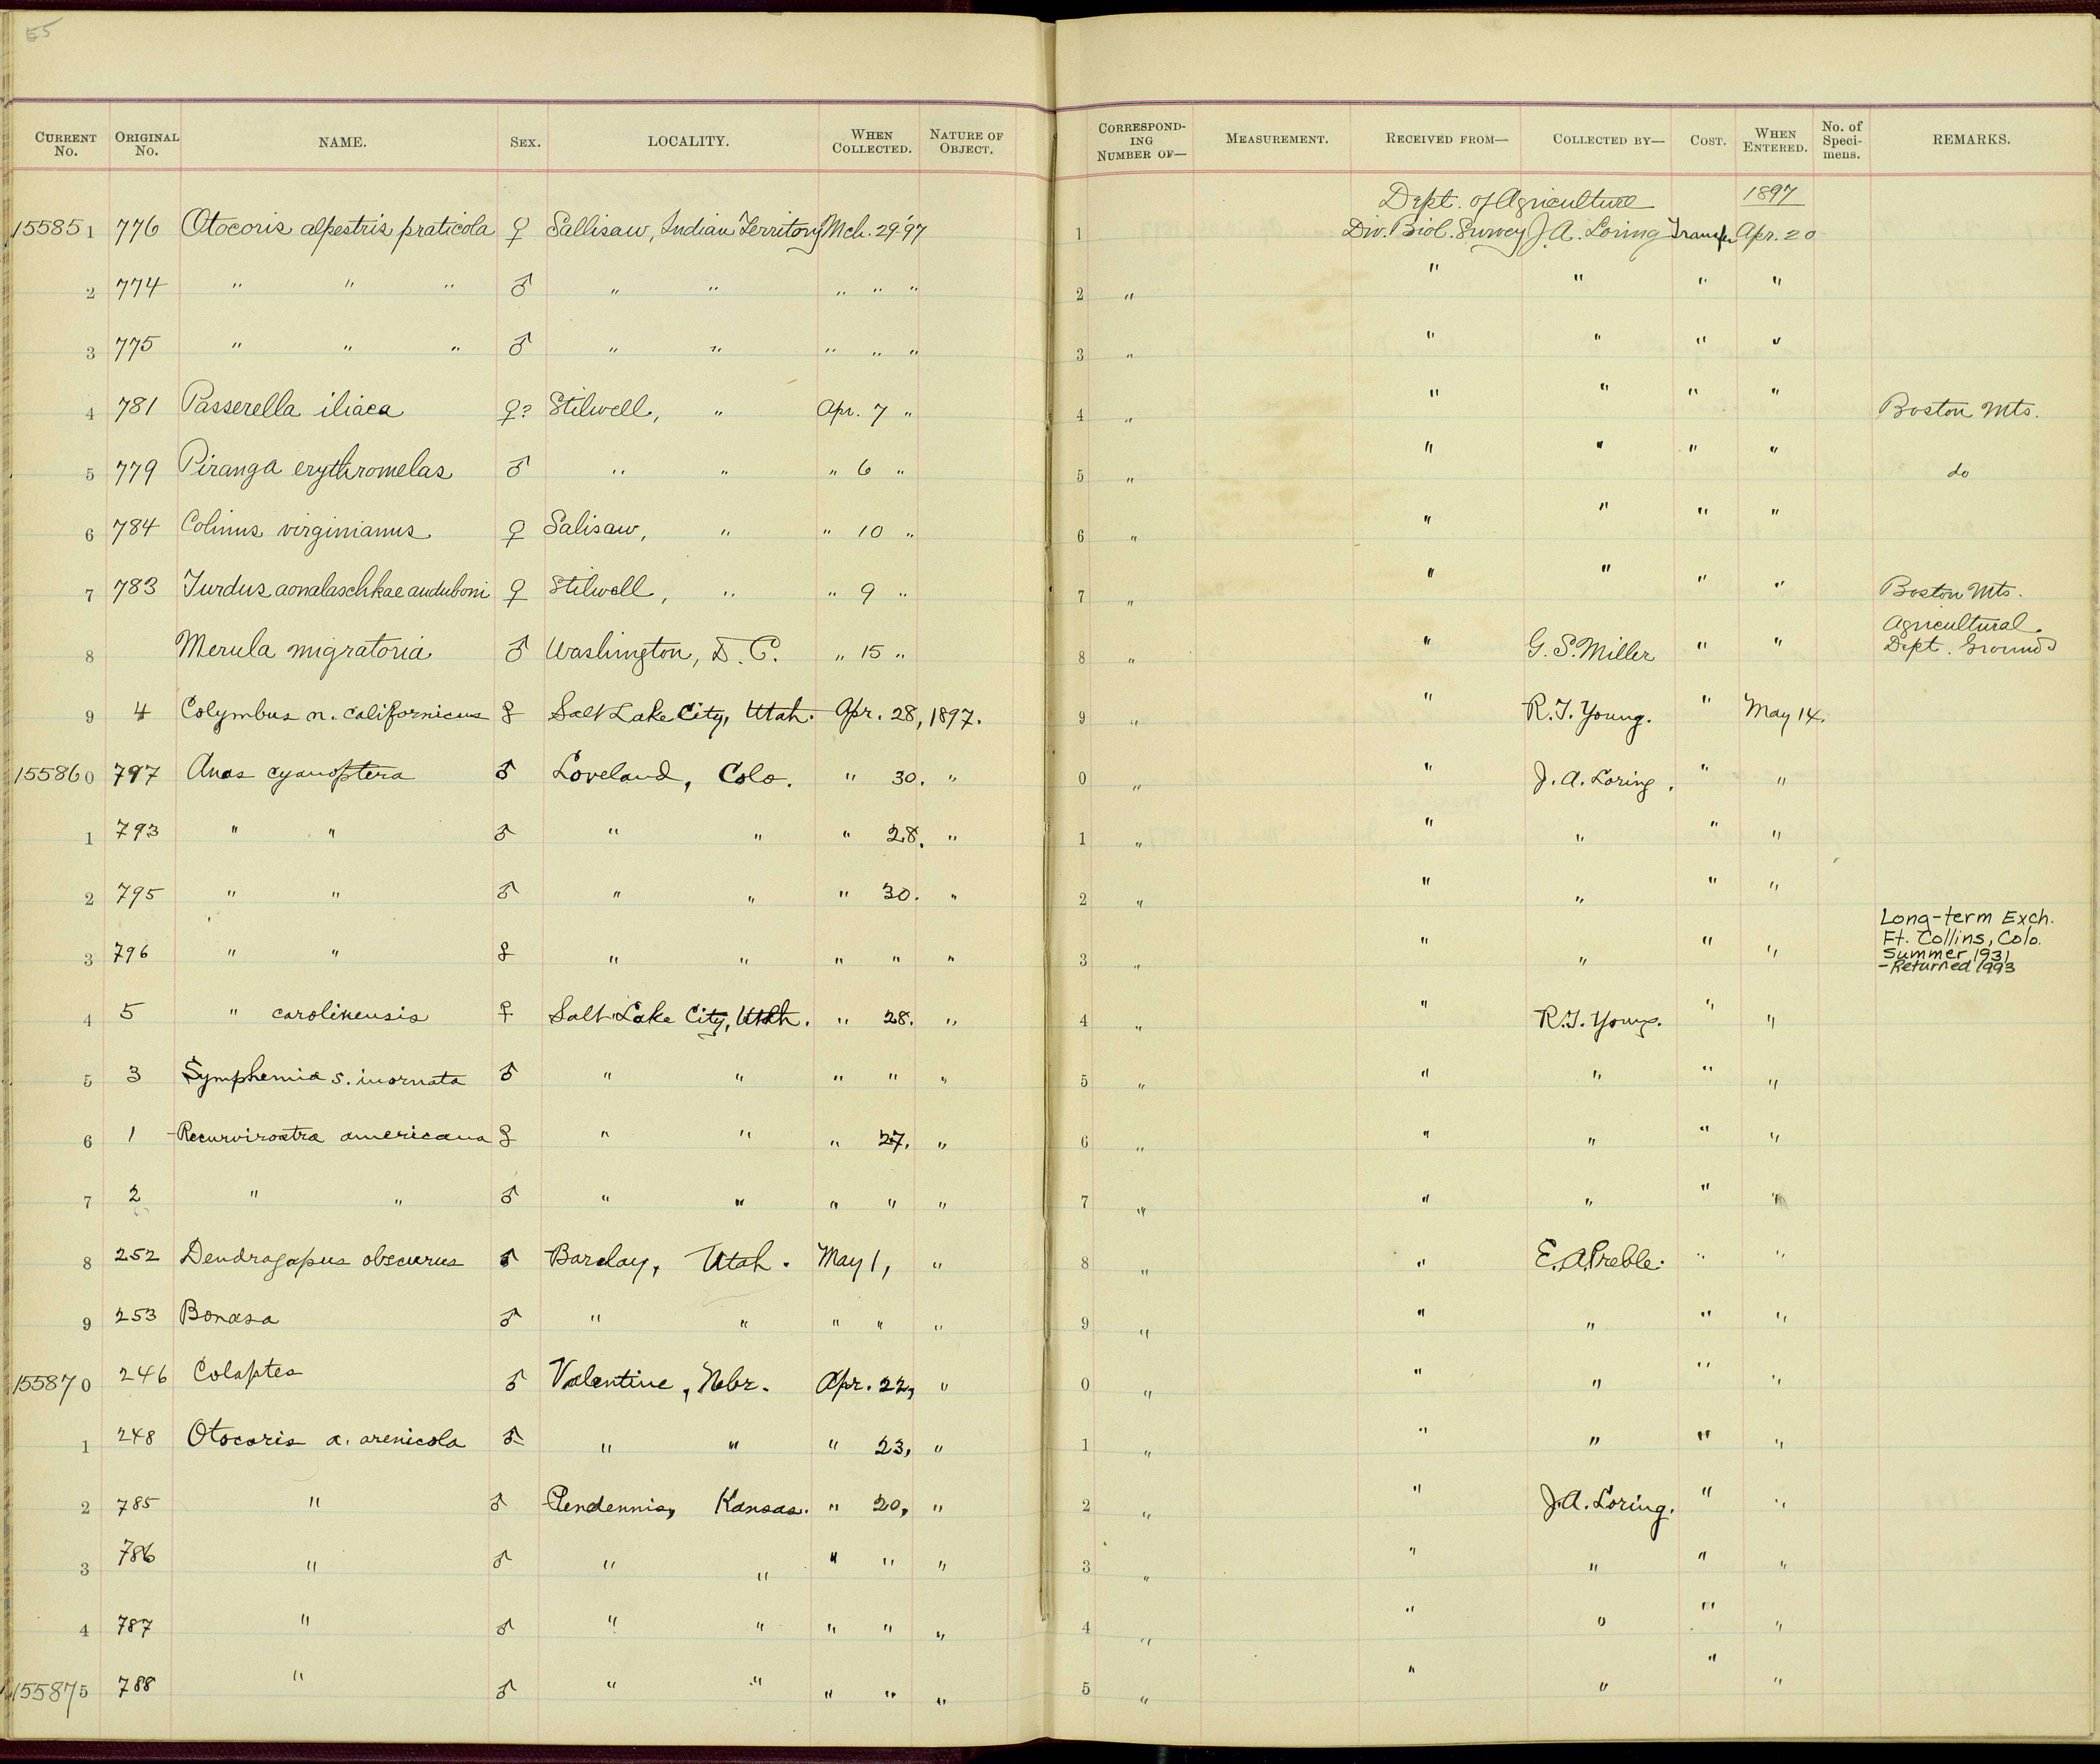 55
CURRENT No. ORIGINAL No. NAME. SEX. LOCALITY. WHEN COLLECTED. NATURE OF OBJECT. CORRESPONDING NUMBER OF— MEASUREMENT. RECEIVED FROM— COLLECTED BY— COST. WHEN ENTERED. No. of Specimens. REMARKS.
Dept. of Agriculture 1897
155851 776 Otocoris alpestris praticola ♀ Sallisaw, Indian Territory Mch. 29 '97 1 Div. Biol. Survey J. A. Loring Transfer Apr. 20
2 774 " " " ♂ " " " " " 2 " " " " "
3 775 " " " ♂ " " " " " 3 " " " " "
4 781 Passerella iliaca ♀? Stilwell, " Apr. 7 " 4 " " " " " Boston Mts.
5 779 Piranga erythromelas ♂ " " " 6 " 5 " " " " " do
6 784 Colinus virginianus ♀ Salisaw, " " 10 " 6 " " " " "
7 783 Turdus aonalaschkae auduboni ♀ Stilwell, " " 9 " 7 " " " " " Boston Mts.
8 Merula migratoria ♂ Washington, D. C. " 15 " 8 " " G. S. Miller " " Agricultural Dept. Grounds
9 4 Colymbus n. californicus ♀ Salt Lake City, Utah. Apr. 28, 1897. 9 " " R. T. Young. " May 14.
155860 797 Anas cyanoptera ♂ Loveland, Colo. " 30. " 0 " " J. A. Loring. " "
1 793 " " ♂ " " " 28. " 1 " " " " "
2 795 " " ♂ " " " 30. " 2 " " " " "
3 796 " " ♀ " " " " " 3 " " " " " Long-term Exch. Ft. Collins, Colo. Summer 1931 - Returned 1993
4 5 " carolinensis ♀ Salt Lake City, Utah. " 28. " 4 " " R. T. Young. " "
5 3 Symphemia s. inornata ♂ " " " " " 5 " " " " "
6 1 Recurvirostra americana ♀ " " " 27. " 6 " " " " "
7 2 " " ♂ " " " " " 7 " " " " "
8 252 Dendragapus obscurus ♂ Barclay, Utah. May 1, " 8 " " E. A. Preble. " "
9 253 Bonasa ♂ " " " " " 9 " " " " "
155870 246 Colaptes ♂ Valentine, Nebr. Apr. 22, " 0 " " " " "
1 248 Otocoris a. arenicola ♂ " " " 23, " 1 " " " " "
2 785 " ♂ Pendennis, Kansas. " 20, " 2 " " J. A. Loring. " "
3 786 " ♂ " " " " " 3 " " " " "
4 787 " ♂ " " " " " 4 " " " " "
155875 788 " ♂ " " " " " 5 " " " " "